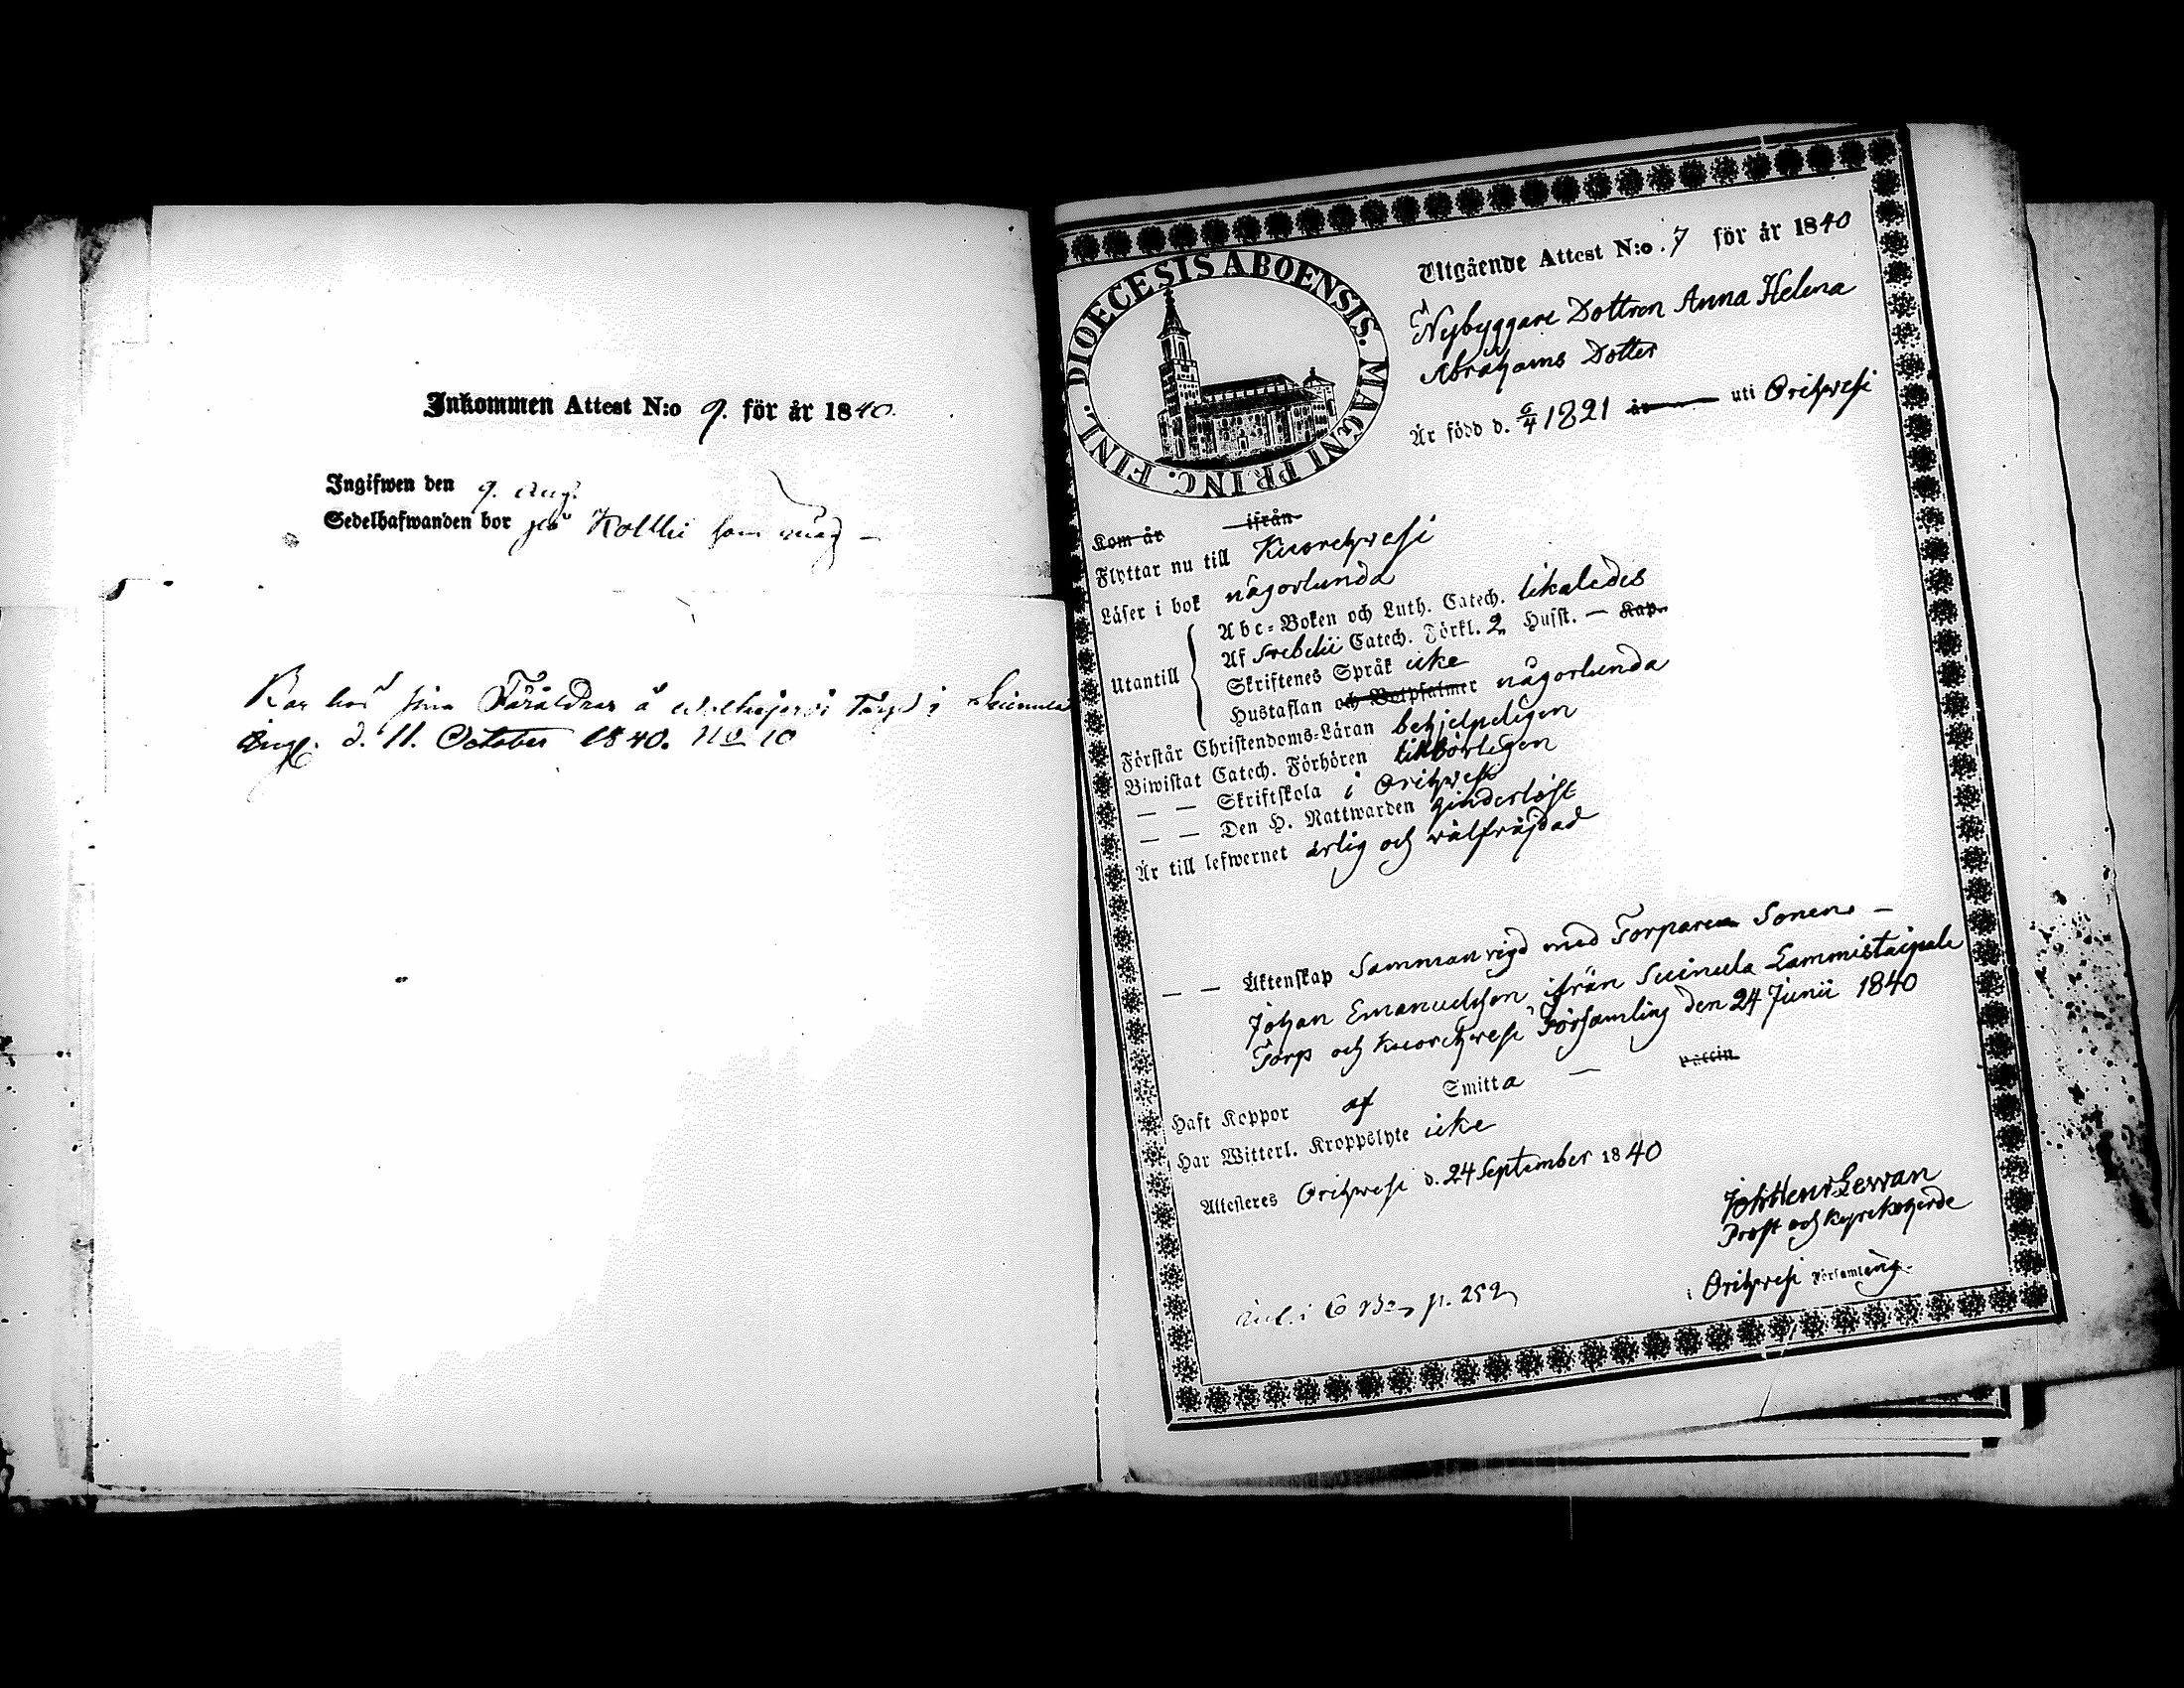 Inkommen Attest N:o 9. för år 1840.
Ingifwen den 9. Aug.
Sedelhafwanden bor på Koltti som måg –
Bor hos sina Föräldrar å torp i Suinula
Ing. d. 11. October 1840. No 10
DIOECESIS ABOENSIS. MAGNI PRINC. FINL.
Utgående Attest N:o 7 för år 1840
Nybyggare Dottren Anna Helena
Abrahams Dotter
Är född d. 6/4 1821 år uti Orihwesi
Kom år ifrån
Flyttar nu till Kuorehwesi
Läser i bok någorlunda
Utantill
Abc-Boken och Luth. Catech. likaledes
Af Svebelii Catech. Förkl. 2 Hufst. — Kap.
Skriftenes Språk icke
Hustaflan och Botpsalmer någorlunda
Förstår Christendoms-Läran behjelpeligen
Biwistat Catech. Förhören tillbörligen
— — Skriftskola i Orihwesi
— — Den H. Nattwarden hinderlöst
Är till lefwernet ärlig och wälfräjdad
— — Äktenskap Sammanvigd med Torpare Sonen —
Johan Emanuelsson ifrån Suinula Lammistaipale
Torp och Kuorehwesi Församling den 24 Junii 1840
Haft Koppor af Smitta — vaccin
Har Witterl. Kroppslyte icke
Attesteres Orihwesi d. 24 September 1840
Joh Henr Lewan
Prost och Kyrckoherde
i Orihwesi Församling.
p. 252